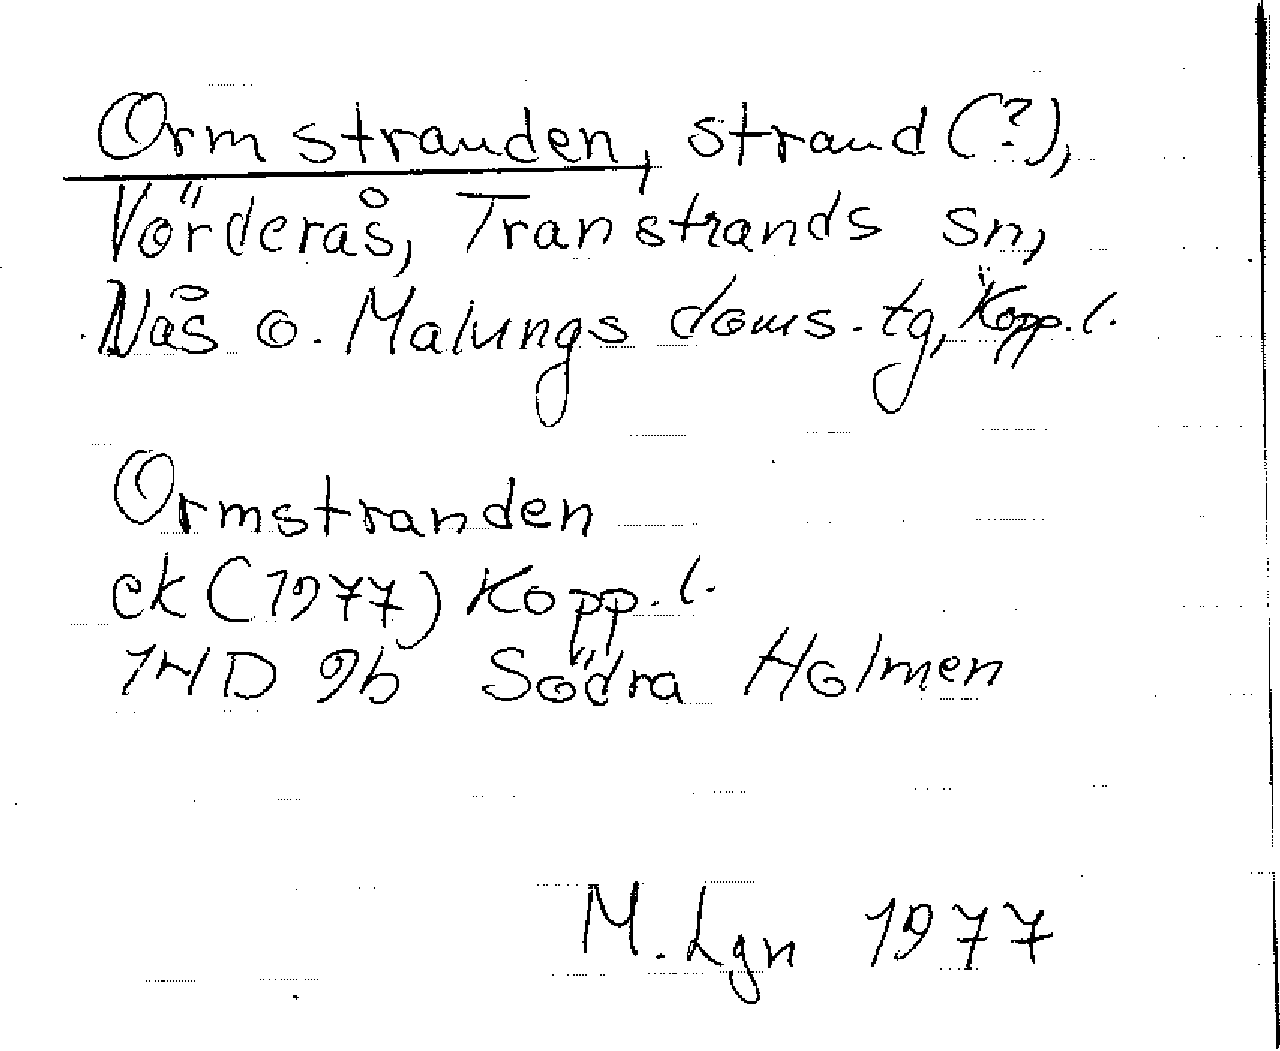 Ormstranden, strand (?),
Vörderås, Transtrands sn,
Nås o. Malungs doms. tg, Kopp. l.
Ormstranden
ek (1977) Kopp. l.
14D 9b Södra Holmen
M. Lgn 1977